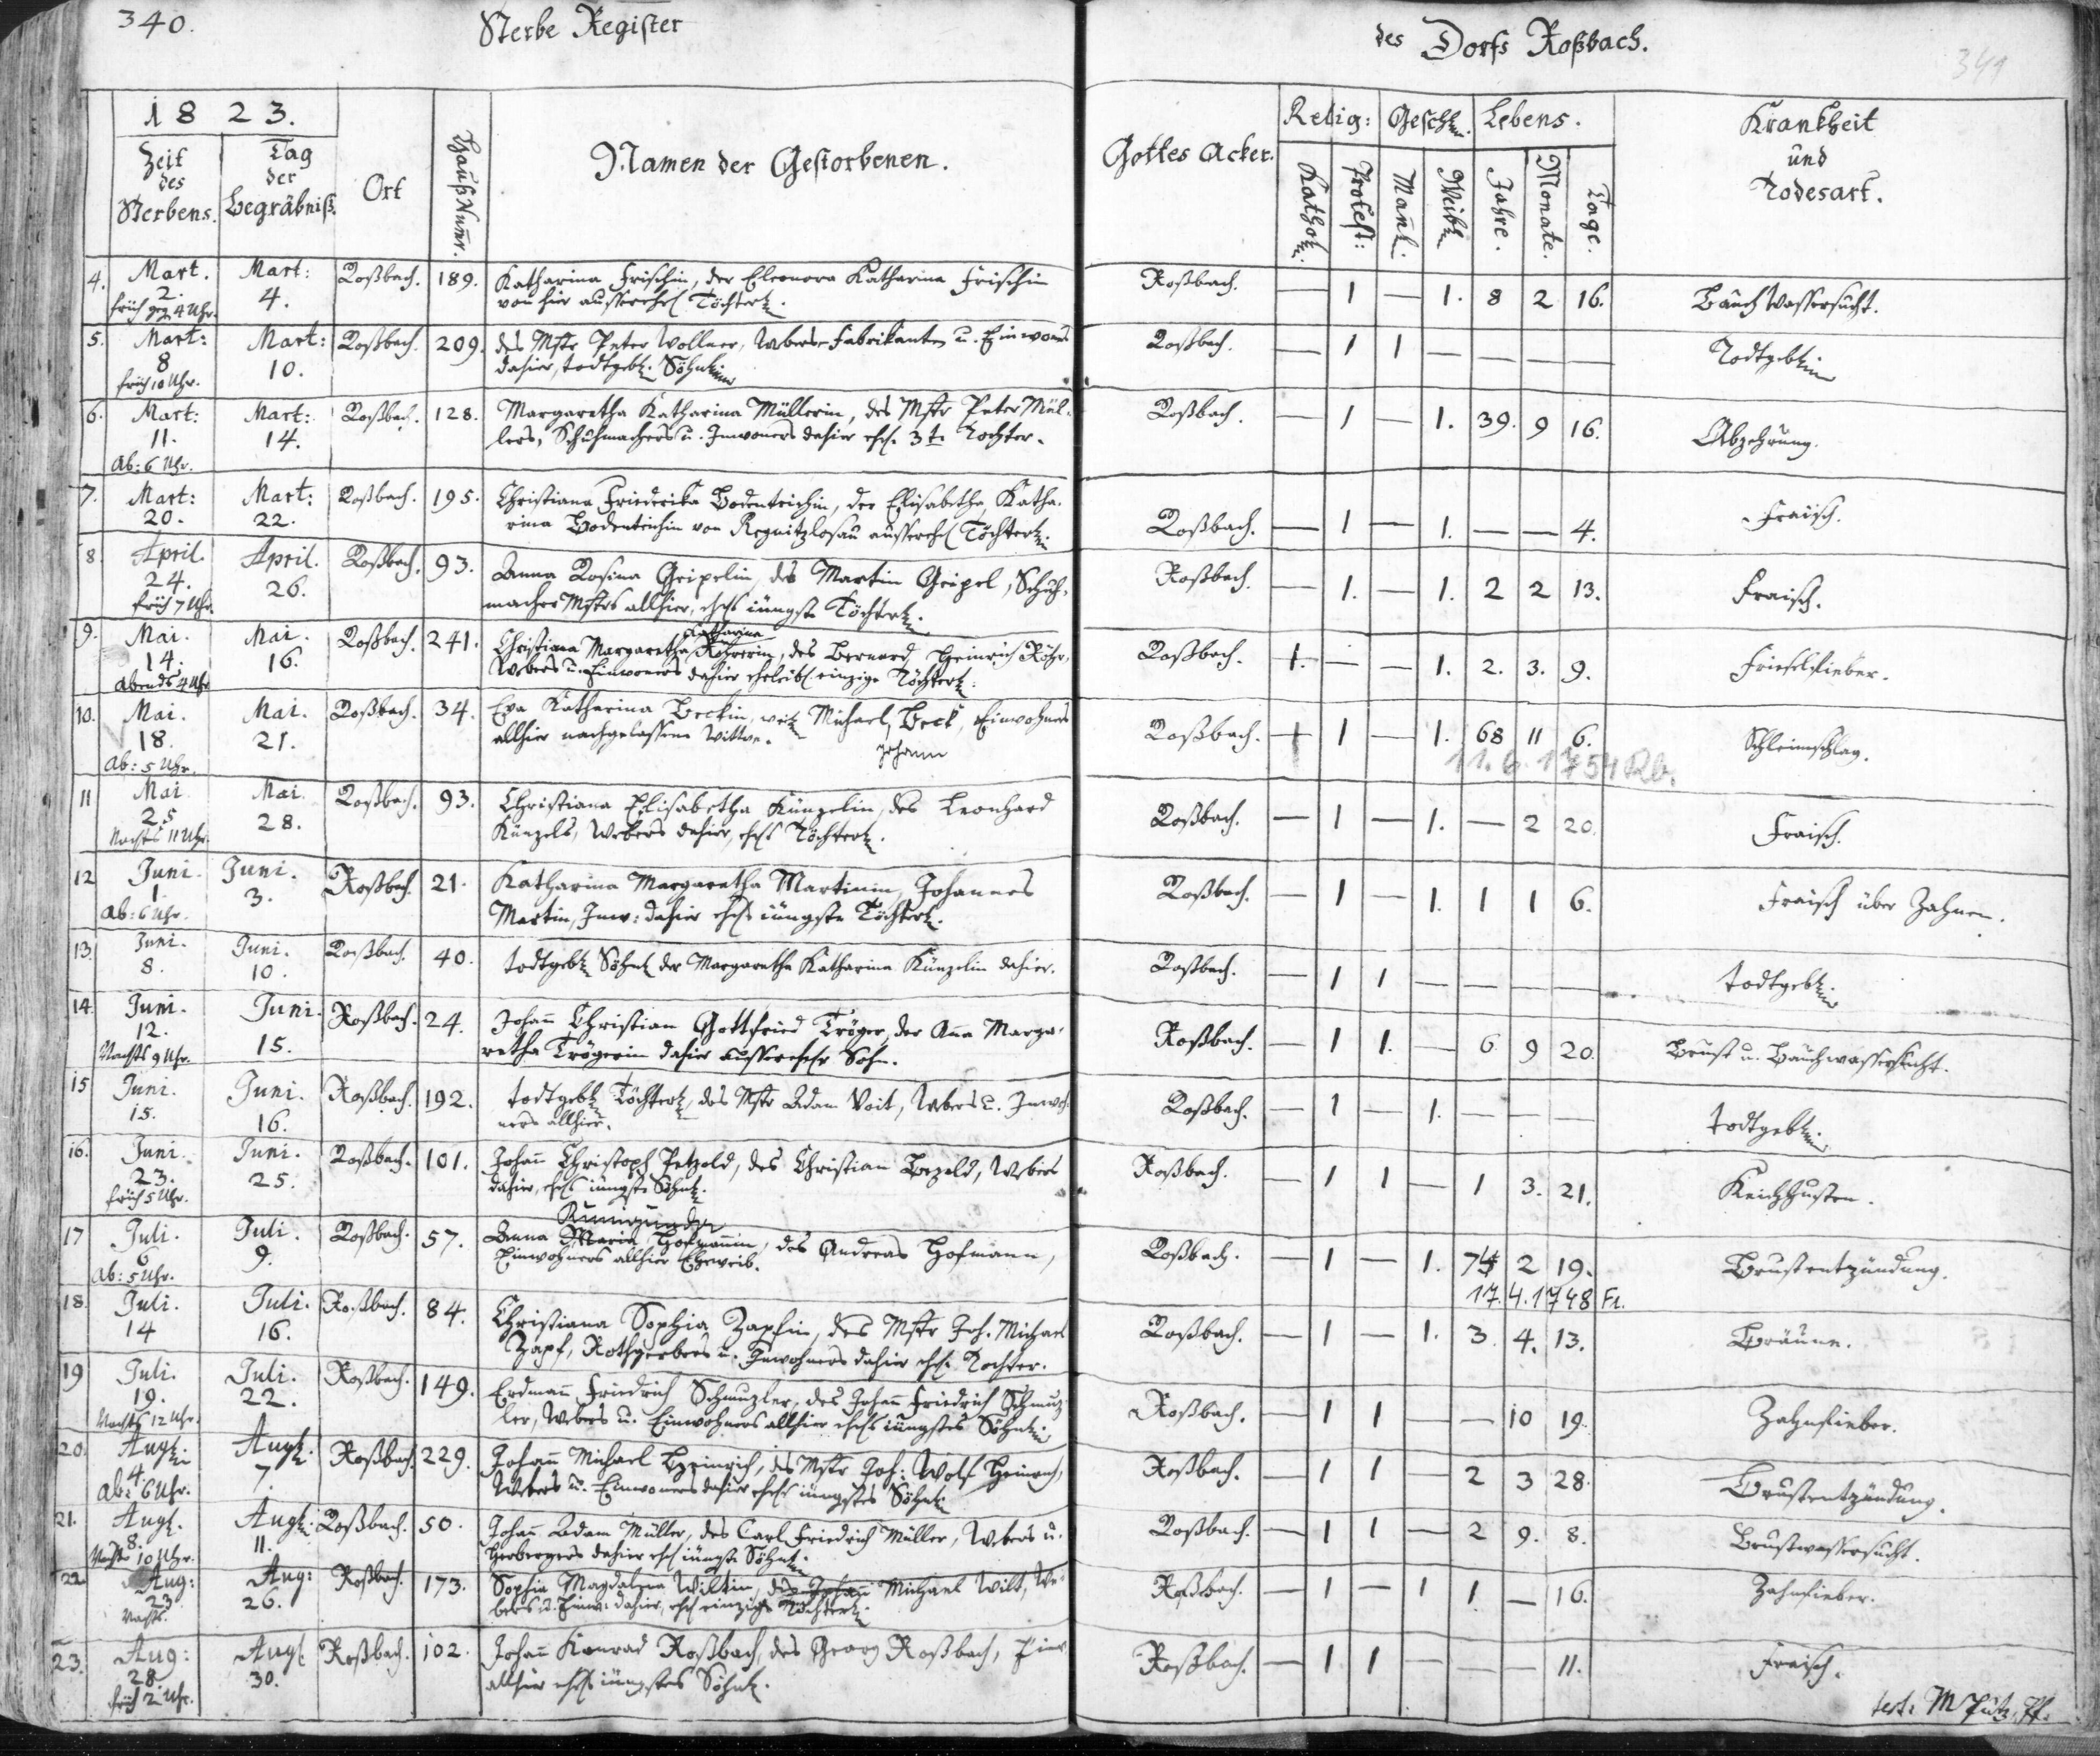 340.
Sterbe Register
des Dorfs Roßbach.
341
1823.
Zeit des Sterbens.
Tag der Begräbniß.
Ort
Hauß Num̄r.
Namen der Gestorbenen.
Gottes Acker.
Relig:
Kathol.
Protest:
Geschl.
Mañl.
Weibl.
Lebens.
Jahre.
Monate.
Tage.
Krankheit
und
Todesart.
4. Mart. Mart: Roßbach. 189. Katharina Frischin, der Eleonora Katharina Frischin Roßbach. — 1 — 1. 8 2 16. Bauch Wassersucht.
2. 4. von hier ausserehel Töchterl.
früh geg 4 Uhr.
5. Mart: Mart: Roßbach. 209. des Mstr Peter Wollner, Webers-Fabrikanten u. Einwoners Roßbach. — 1 1 — — — — Todtgeb.
8 10. dahier, todtgeb. Söhnl.
früh 10 Uhr.
6. Mart: Mart: Roßbach. 128. Margaretha Katharina Müllerin, des Mstr Peter Mül- Roßbach. — 1 — 1. 39. 9 16. Abzehrung.
11. 14. lers, Schuhmachers u. Inwoners dahier ehel. 3te Tochter.
Ab: 6 Uhr.
7. Mart: Mart: Roßbach. 195. Christiana Friederika Bodenteichin, der Elisabetha Katha- Roßbach. — 1 — 1. — — 4. Fraisch.
20. 22. rina Bodenteichin von Regnitzlosau ausserehel Töchterl.
8. April. April. Roßbach. 93. Anna Rosina Geipelin, des Martin Geipel, Schuh- Roßbach. — 1. — 1. 2 2 13. Fraisch.
24. 26. macher Mstrs allhier, ehel jüngste Töchterl.
früh 7 Uhr.
Katharina
9. Mai. Mai. Roßbach. 241. Christiana Margaretha Röhrerin, des Bernard Heinrich Röhr, Roßbach. 1. — — 1. 2. 3. 9. Frieselfieber.
14. 16. Webers u. Einwoners dahier eheleibl einzige Töchterl.
Abends 4 Uhr
10. Mai. Mai. Roßbach. 34. Eva Katharina Beckin, weil Michael Beck, Einwohners Roßbach. + 1 — 1. 68 11 6. Schleimschlag.
18. 21. allhier nachgelassene Wittwe. Johann
Ab: 5 Uhr. 11.6.1754 Rb.
11 Mai Mai. Roßbach. 93. Christiana Elisabetha Künzelin, des Leonhard Roßbach. — 1 — 1. — 2 20. Fraisch.
25 28. Künzels, Webers dahier, ehel Töchterl.
Nachts 11 Uhr.
12 Juni. Juni. Roßbach. 21. Katharina Margaretha Martinin, Johannes Roßbach. — 1 — 1. 1 1 6. Fraisch über Zahnen.
1. 3. Martin, Inw: dahier ehel jüngste Töchterl.
Ab: 6 Uhr.
13. Juni. Juni. Roßbach. 40. todtgeb Söhnl der Margaretha Katharina Künzelin dahier. Roßbach. — 1 1 — — — — todtgeb.
8. 10.
14. Juni. Juni. Roßbach. 24. Johañ Christian Gottfried Tröger, der Aña Marga- Roßbach. — 1 1. — 6 9 20. Brust u. Bauchwassersucht.
12. 15. retha Trögerin dahier ausserehel Sohn.
Nachts 9 Uhr.
15 Juni. Juni. Roßbach. 192. todtgeb Töchterl, des Mstr Adam Voit, Webers u. Inwoh- Roßbach. — 1 — 1. — — — todtgeb.
15. 16. ners allhier.
16. Juni. Juni. Roßbach. 101. Johañ Christoph Petzold, des Christian Bezold, Webers Roßbach. — 1 1 — 1 3. 21. Keichhusten.
23. 25. dahier, ehel jüngste Söhnl.
früh 5 Uhr.
Kunigunda
17 Juli. Juli. Roßbach. 57. Anna Maria Hofmannin, des Andreas Hofmann, Roßbach. — 1 — 1. 74 2 19. Brustentzündung.
6 9. Einwohners allhier Eheweib.
Ab: 5 Uhr. 17.4.1748 Fr.
18. Juli. Juli. Roßbach. 84. Christiana Sophia Zapfin, des Mstr Joh. Michael Roßbach. — 1 — 1. 3. 4. 13. Bräune.
14 16. Zapf, Rothgerbers u. Inwohners dahier ehel. Tochter.
19 Juli. Juli. Roßbach. 149. Erdmañ Friedrich Schmuzler, des Johañ Friedrich Schmuz- Roßbach. — 1 1 — — 10 19. Zahnfieber.
19. 22. ler, Webers u. Einwohners allhier ehel jüngstes Söhnl.
Nachts 12 Uhr.
20. Augl. Augl. Roßbach. 229. Johañ Michael Heinrich, des Mstr Joh: Wolf Heinrich, Roßbach. — 1 1 — 2 3 28. Brustentzündung.
4. 7. Webers u. Einwoners dahier ehel jüngstes Söhnl.
Ab: 6 Uhr.
21. Augl. Augl. Roßbach. 50. Johañ Adam Müller, des Carl Friedrich Müller, Webers u. Roßbach. — 1 1 — 2 9. 8. Brustwassersucht.
8. 11. Herbergers dahier ehel jüngste Söhnl.
Nachts 10 Uhr.
22. Aug: Aug: Roßbach. 173. Sophia Magdalena Wiltin, des Johañ Michael Wilt, We- Roßbach. — 1 — 1 1 — 16. Zahnfieber.
23 26. bers u. Einw: dahier, ehel einzige Töchterl.
Nachts.
23. Aug: Augl Roßbach. 102. Johañ Konrad Roßbach, des Georg Roßbach, Einw Roßbach. — 1 1 — — — 11. Fraisch.
28. 30. allhier ehel jüngstes Söhnl.
früh 2 Uhr.
test: